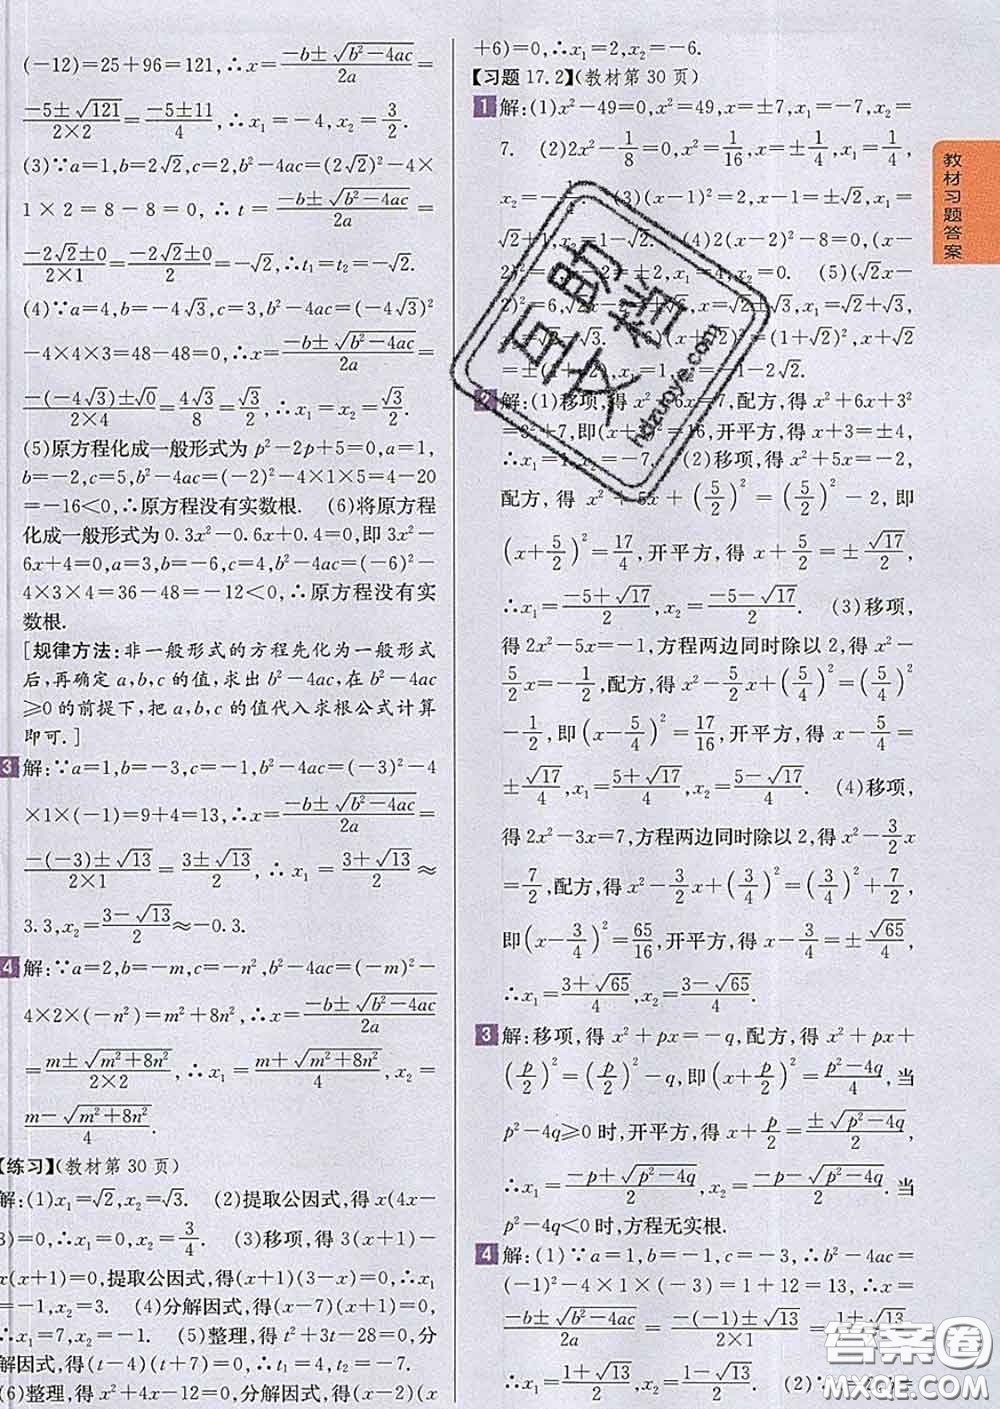 (-12)=25+96=121,∴x=\frac{-b±\sqrt{b²-4ac}}{2a}=
\frac{-5±\sqrt{121}}{2×2}=\frac{-5±11}{4},∴x₁=-4,x₂=\frac{3}{2}.
(3)∵a=1,b=2√2,c=2,b²-4ac=(2√2)²-4×
1×2=8-8=0,∴t=\frac{-b±\sqrt{b²-4ac}}{2a}=
\frac{-2√2±0}{2×1}=\frac{-2√2±0}{2}=-√2,∴t₁=t₂=-√2.
(4)∵a=4,b=-4√3,c=3,b²-4ac=(-4√3)²
-4×4×3=48-48=0,∴x=\frac{-b±\sqrt{b²-4ac}}{2a}=
\frac{-(-4√3)±√0}{2×4}=\frac{4√3}{8}=\frac{√3}{2},∴x₁=x₂=\frac{√3}{2}.
(5)原方程化成一般形式为p²-2p+5=0,a=1,
b=-2,c=5,b²-4ac=(-2)²-4×1×5=4-20
=-16<0,∴原方程没有实数根. (6)将原方程
化成一般形式为0.3x²-0.6x+0.4=0,即3x²-
6x+4=0,a=3,b=-6,c=4,b²-4ac=(-6)²-
4×3×4=36-48=-12<0,∴原方程没有实
数根.
[规律方法:非一般形式的方程先化为一般形式
后,再确定a,b,c的值,求出b²-4ac,在b²-4ac
≥0的前提下,把a,b,c的值代入求根公式计算
即可.]
3 解:∵a=1,b=-3,c=-1,b²-4ac=(-3)²-4
×1×(-1)=9+4=13,∴x=\frac{-b±\sqrt{b²-4ac}}{2a}=
\frac{-(-3)±√13}{2×1}=\frac{3±√13}{2},∴x₁=\frac{3+√13}{2}≈
3.3,x₂=\frac{3-√13}{2}≈-0.3.
4 解:∵a=2,b=-m,c=-n²,b²-4ac=(-m)²-
4×2×(-n²)=m²+8n²,∴x=\frac{-b±\sqrt{b²-4ac}}{2a}
=\frac{m±\sqrt{m²+8n²}}{2×2},∴x₁=\frac{m+\sqrt{m²+8n²}}{4},x₂=
\frac{m-\sqrt{m²+8n²}}{4}.
【练习】(教材第30页)
解:(1)x₁=√2,x₂=√3. (2)提取公因式,得x(4x-
3)=0,∴x₁=0,x₂=\frac{3}{4}. (3)移项,得3(x+1)-
x(x+1)=0,提取公因式,得(x+1)(3-x)=0,∴x₁
=-1,x₂=3. (4)分解因式,得(x-7)(x+1)=0,
∴x₁=7,x₂=-1. (5)整理,得t²+3t-28=0,分
解因式,得(t-4)(t+7)=0,∴t₁=4,t₂=-7.
(6)整理,得x²+4x-12=0,分解因式,得(x-2)(x
+6)=0,∴x₁=2,x₂=-6.
【习题17.2】(教材第30页)
1 解:(1)x²-49=0,x²=49,x=±7,x₁=-7,x₂=
7. (2)2x²-\frac{1}{8}=0,x²=\frac{1}{16},x=±\frac{1}{4},x₁=\frac{1}{4},
x₂=- (3)(x-1)²=2,x-1=±√2,x₁=
√2+1,x₂=1-√2. (4)2(x-2)²-8=0,(x-
±2,x₁=4,x₂=0. (5)(√2x-
2)²=6,√2x- x=√2±√3,x₁=√2+√3,
x₂=√2-√3. (6)(x+ )²=(1+√2)²,x+
=±(1+√2),x₁=1,x₂=-1-2√2.
2 解:(1)移项,得x²+6x=7,配方,得x²+6x+3²
=3²+7,即(x+3)²=16,开平方,得x+3=±4,
∴x₁=1,x₂=-7. (2)移项,得x²+5x=-2,
配方,得x²+5x+(\frac{5}{2})²=(\frac{5}{2})²-2,即
(x+\frac{5}{2})²=\frac{17}{4},开平方,得x+\frac{5}{2}=±\frac{√17}{2},
∴x₁=\frac{-5+√17}{2},x₂=\frac{-5-√17}{2}. (3)移项,
得2x²-5x=-1,方程两边同时除以2,得x²-
\frac{5}{2}x=-\frac{1}{2},配方,得x²-\frac{5}{2}x+(\frac{5}{4})²=(\frac{5}{4})²
-\frac{1}{2},即(x-\frac{5}{4})²=\frac{17}{16},开平方,得x-\frac{5}{4}=
±\frac{√17}{4},x₁=\frac{5+√17}{4},x₂=\frac{5-√17}{4}. (4)移项,
得2x²-3x=7,方程两边同时除以2,得x²-\frac{3}{2}x
=\frac{7}{2},配方,得x²-\frac{3}{2}x+(\frac{3}{4})²=(\frac{3}{4})²+\frac{7}{2},
即(x-\frac{3}{4})²=\frac{65}{16},开平方,得x-\frac{3}{4}=±\frac{√65}{4},
∴x₁=\frac{3+√65}{4},x₂=\frac{3-√65}{4}.
3 解:移项,得x²+px=-q,配方,得x²+px+
(\frac{p}{2})²=(\frac{p}{2})²-q,即(x+\frac{p}{2})²=\frac{p²-4q}{4},当
p²-4q≥0时,开平方,得x+\frac{p}{2}=\frac{±\sqrt{p²-4q}}{2},
∴x₁=\frac{-p+\sqrt{p²-4q}}{2},x₂=\frac{-p-\sqrt{p²-4q}}{2}. 当
p²-4q<0时,方程无实根.
4 解:(1)∵a=1,b=-1,c=-3,∴b²-4ac=
(-1)²-4×1×(-3)=1+12=13,∴x=
\frac{-b±\sqrt{b²-4ac}}{2a}=\frac{-(-1)±√13}{2×1}=\frac{1±√13}{2},
∴x₁=\frac{1+√13}{2},x₂=\frac{1-√13}{2}. (2)∵
教材习题答案
互助文档
hdzuoye.com
答案圈
MXQE.COM